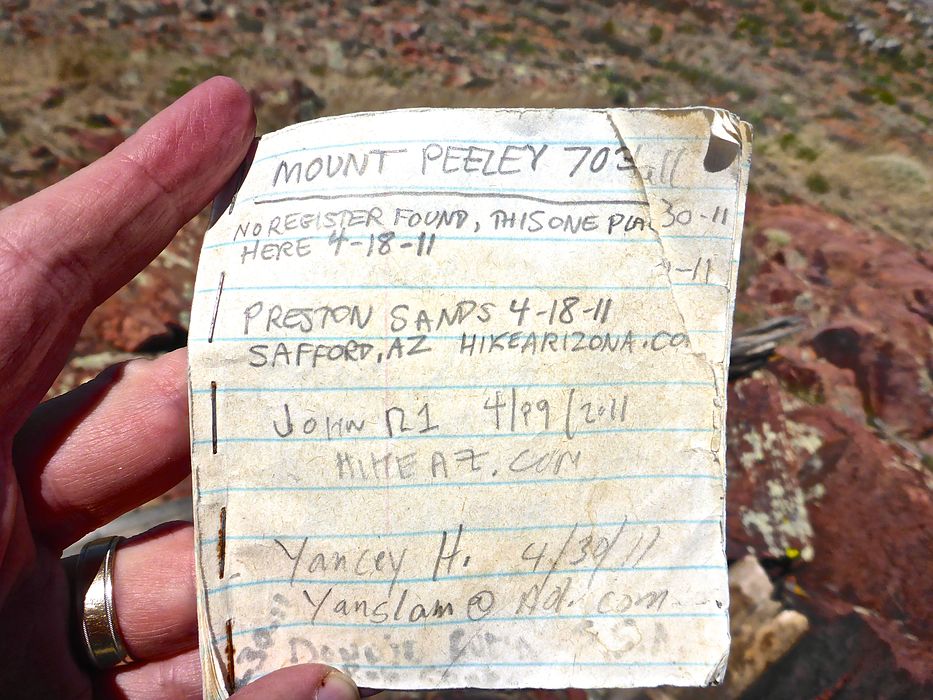 MOUNT PEELEY 703
.11
NO REGISTER FOUND, THIS ONE PLA
30-11
HERE 4-18-11
-11
PRESTON SANDS 4-18-11
SAFFORD, AZ HIKEARIZONA.CO
JOHN 4/29/2011
HIKEAZ.COM
Yancey H. 4/30/11
Yanslam@ .com